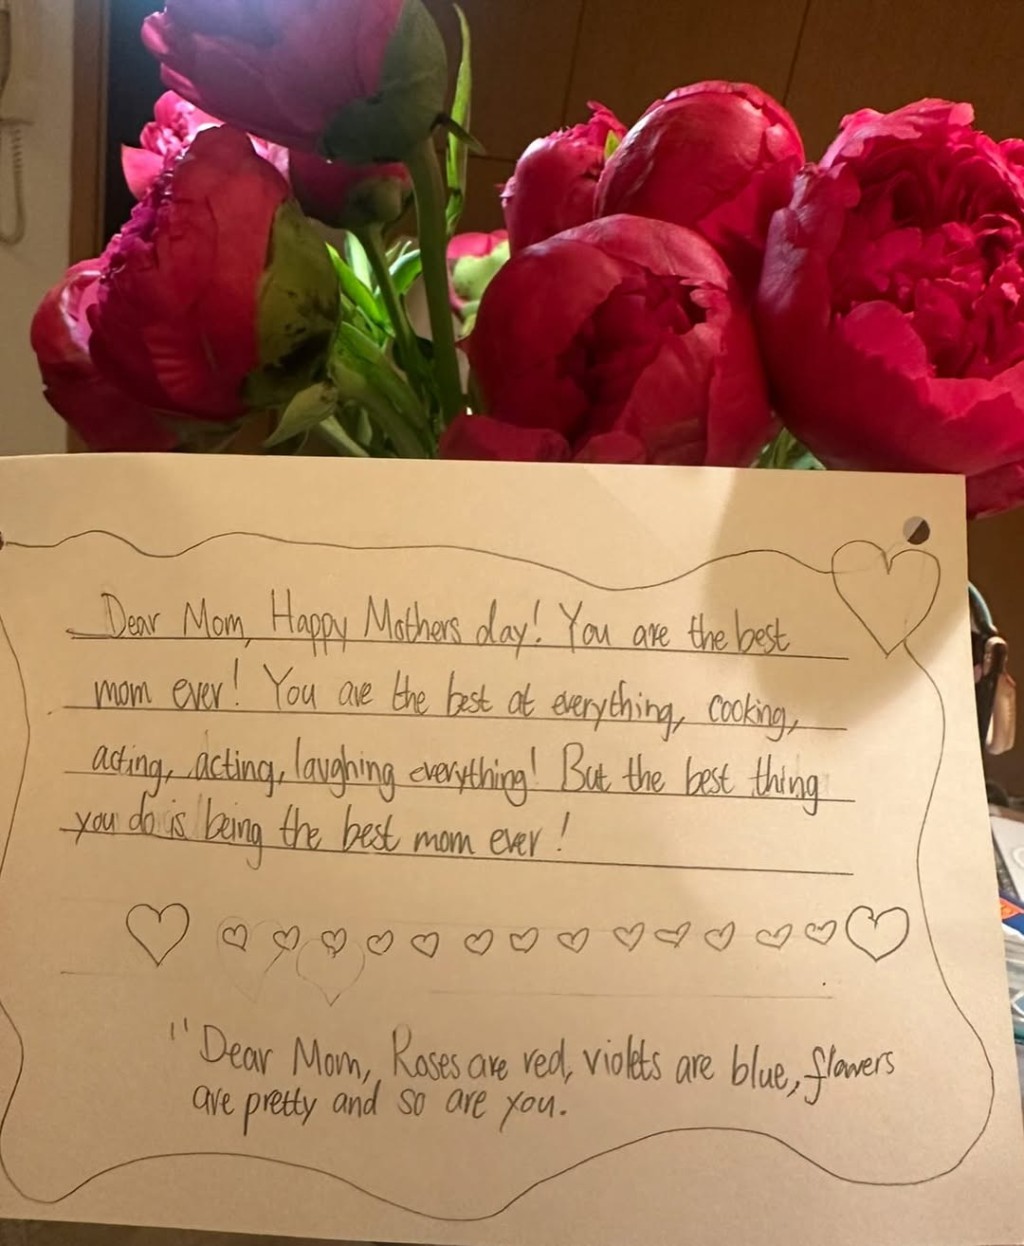 Dear Mom, Happy Mothers day! You are the best
mom ever! You are the best at everything, cooking,
acting, acting, laughing everything! But the best thing
you do is being the best mom ever!
"Dear Mom, Roses are red, violets are blue, flowers
are pretty and so are you.